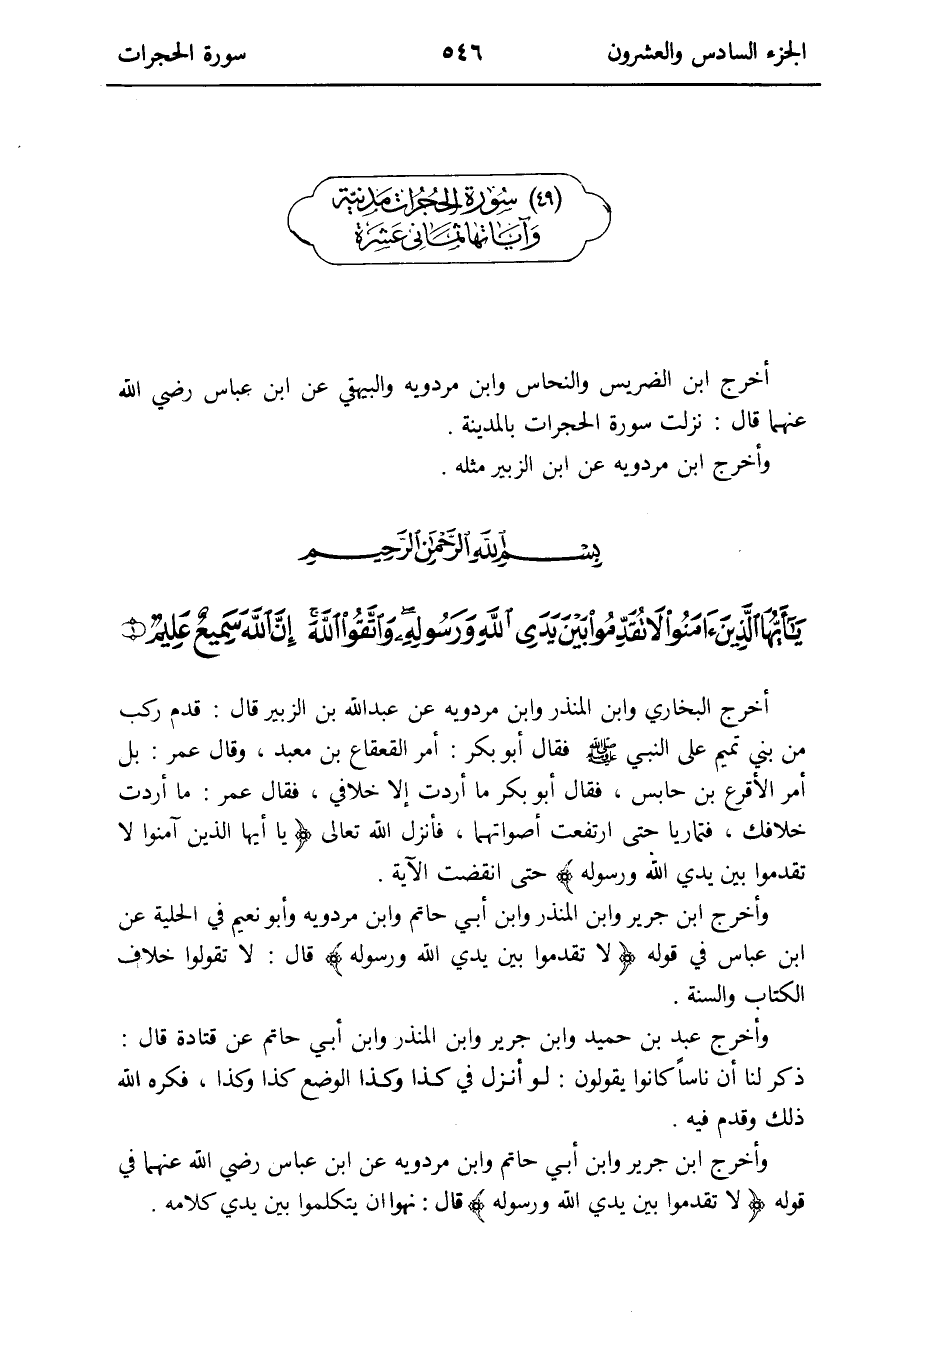 الجزء السادس والعشرون ٥٤٦ سورة الحجرات
(٤٩) سُورَةِ الحُجُرَاتِ مَدنيَّة
وَآيَاتهَا ثَمَانِي عَشَرَة
أخرج ابن الضريس والنحاس وابن مردويه والبيهقي عن ابن عباس رضي الله
عنهما قال : نزلت سورة الحجرات بالمدينة .
وأخرج ابن مردويه عن ابن الزبير مثله .
بِسْمِ ٱللَّهِ ٱلرَّحْمَٰنِ ٱلرَّحِيمِ
يَٰٓأَيُّهَا ٱلَّذِينَ ءَامَنُوا۟ لَا تُقَدِّمُوا۟ بَيْنَ يَدَىِ ٱللَّهِ وَرَسُولِهِۦ ۖ وَٱتَّقُوا۟ ٱللَّهَ ۚ إِنَّ ٱللَّهَ سَمِيعٌ عَلِيمٌ ۝١
أخرج البخاري وابن المنذر وابن مردويه عن عبدالله بن الزبير قال : قدم ركب
من بني تميم على النبي ﷺ فقال أبو بكر : أمر القعقاع بن معبد ، وقال عمر : بل
أمر الأقرع بن حابس ، فقال أبو بكر ما أردت إلا خلافي ، فقال عمر : ما أردت
خلافك ، فتماريا حتى ارتفعت أصواتهما ، فأنزل الله تعالى ﴿ يا أيها الذين آمنوا لا
تقدموا بين يدي الله ورسوله ﴾ حتى انقضت الآية .
وأخرج ابن جرير وابن المنذر وابن أبي حاتم وابن مردويه وأبو نعيم في الحلية عن
ابن عباس في قوله ﴿ لا تقدموا بين يدي الله ورسوله ﴾ قال : لا تقولوا خلاف
الكتاب والسنة .
وأخرج عبد بن حميد وابن جرير وابن المنذر وابن أبي حاتم عن قتادة قال :
ذكر لنا أن ناساً كانوا يقولون : لو أنزل في كذا وكذا الوضع كذا وكذا ، فكره الله
ذلك وقدم فيه .
وأخرج ابن جرير وابن أبي حاتم وابن مردويه عن ابن عباس رضي الله عنهما في
قوله ﴿ لا تقدموا بين يدي الله ورسوله ﴾ قال : نهوا ان يتكلموا بين يدي كلامه .